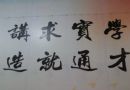 講求實學
造就通才